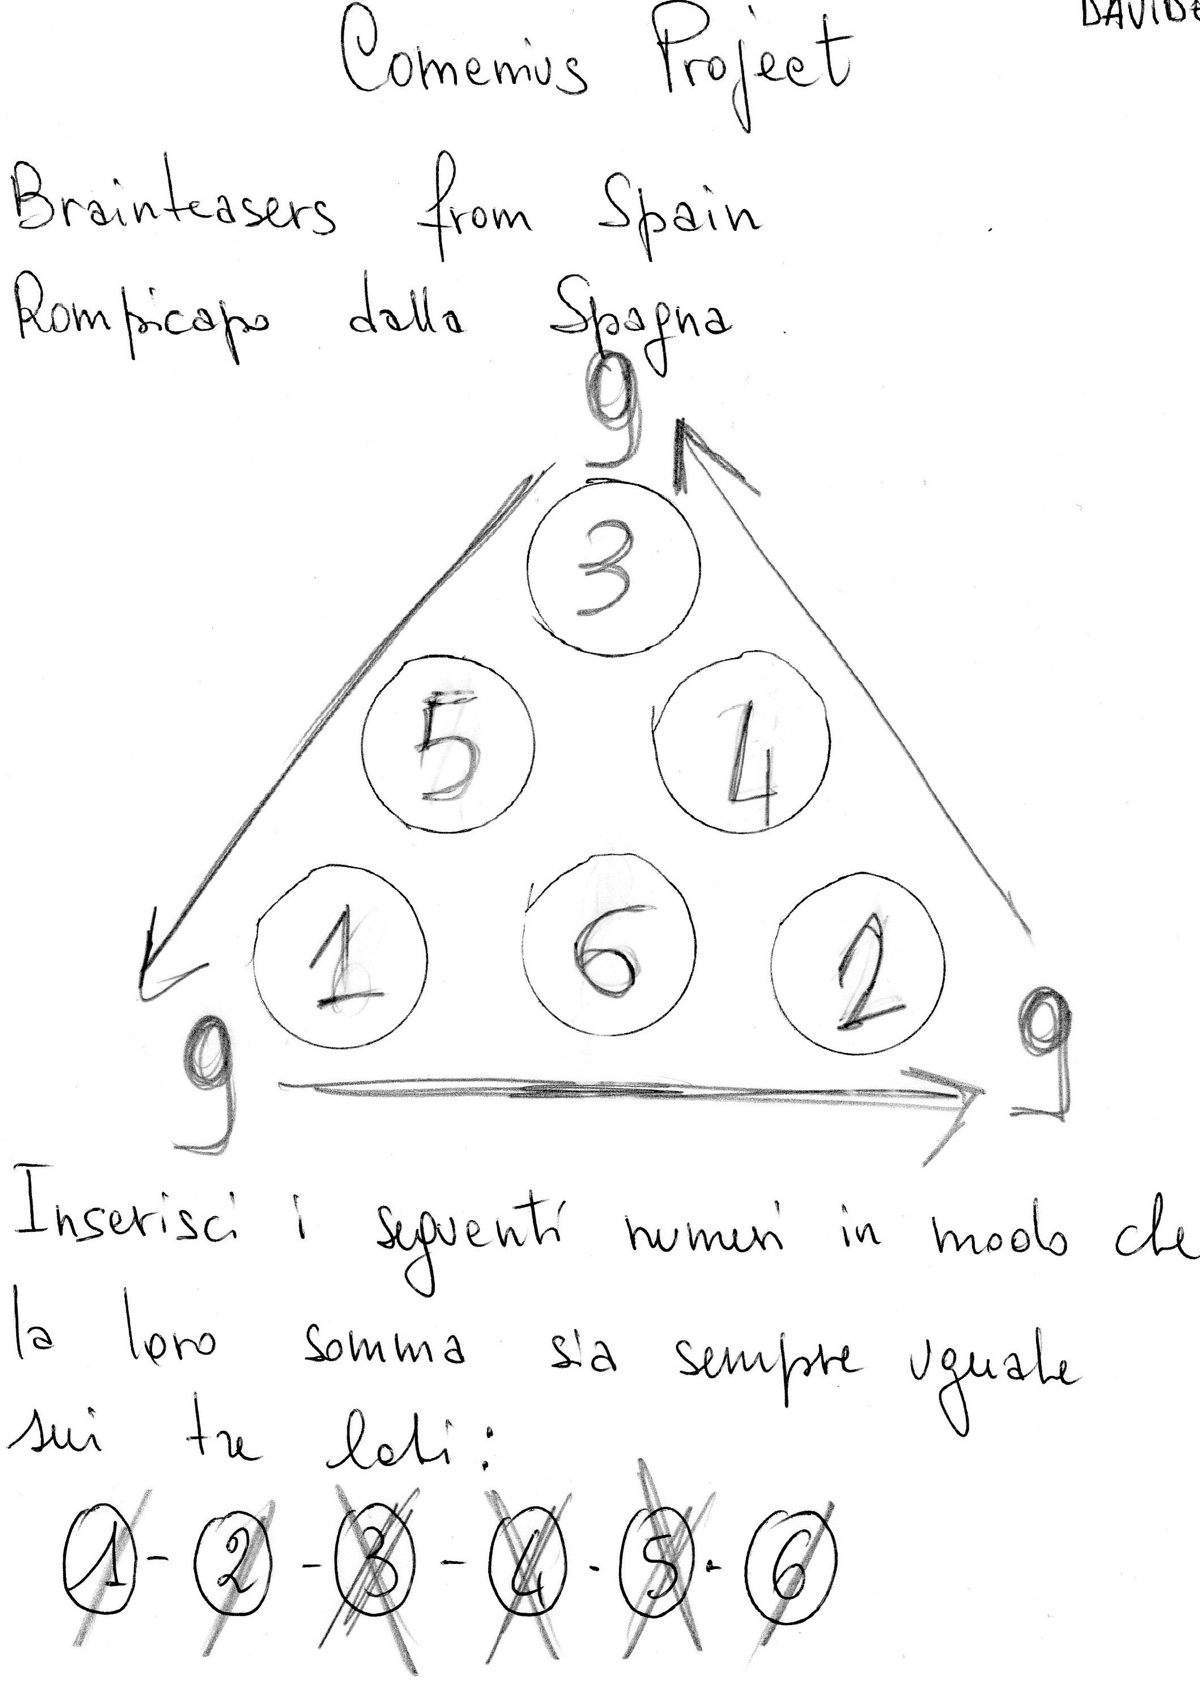 DAVIDE
Comenius Project
Brainteasers from Spain
Rompicapo dalla Spagna
9
3
5 4
1 6 2
9 9
Inserisci i seguenti numeri in modo che
la loro somma sia sempre uguale
sui tre lati:
1 - 2 - 3 - 4 - 5 - 6